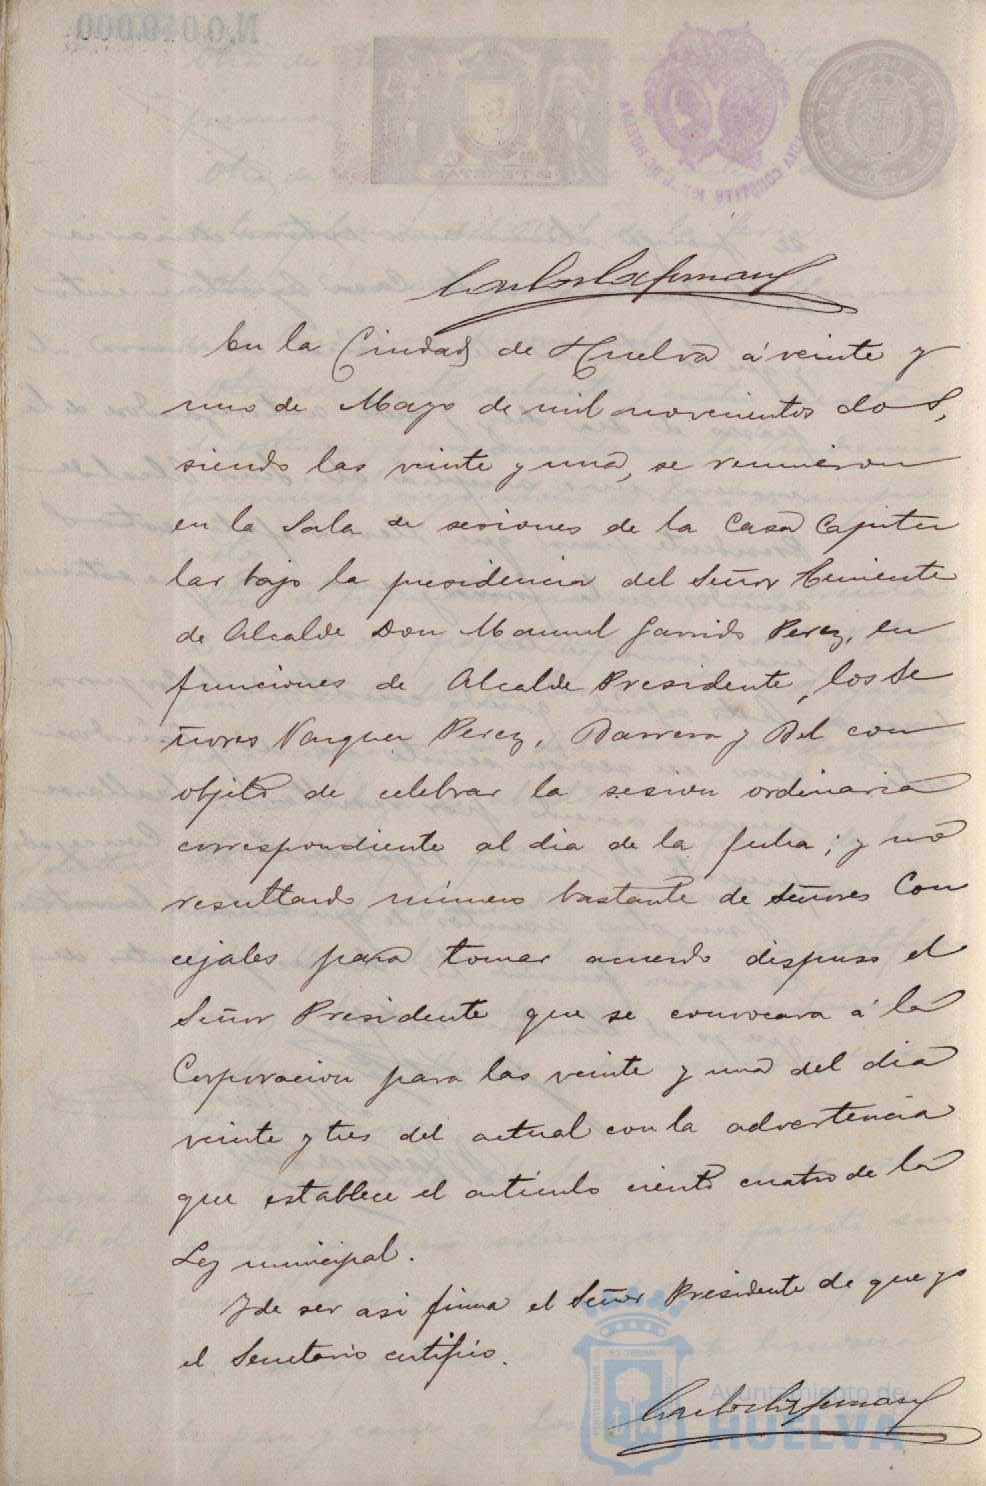 En la Ciudad de Huelva á veinte y
uno de Mayo de mil novecientos dos,
siendo las veinte y una, se reunieron
en la Sala de sesiones de la Casa Capitu
lar bajo la presidencia del Señor Teniente
de Alcalde Don Manuel Garrido Perez, en
funciones de Alcalde Presidente, los Se
ñores Vazquez Perez, Barrera y Bel con
objeto de celebrar la sesion ordinaria
correspondiente al dia de la fecha; y no
resultando número bastante de Señores Con
cejales para tomar acuerdo dispuso el
Señor Presidente que se convocara á la
Corporacion para las veinte y una del dia
veinte y tres del actual con la advertencia
que establece el artículo ciento cuatro de la
Ley municipal.
Y de ser asi firma el Señor Presidente de que yo
el Secretario certifico.
Ayuntamiento de
HUELVA